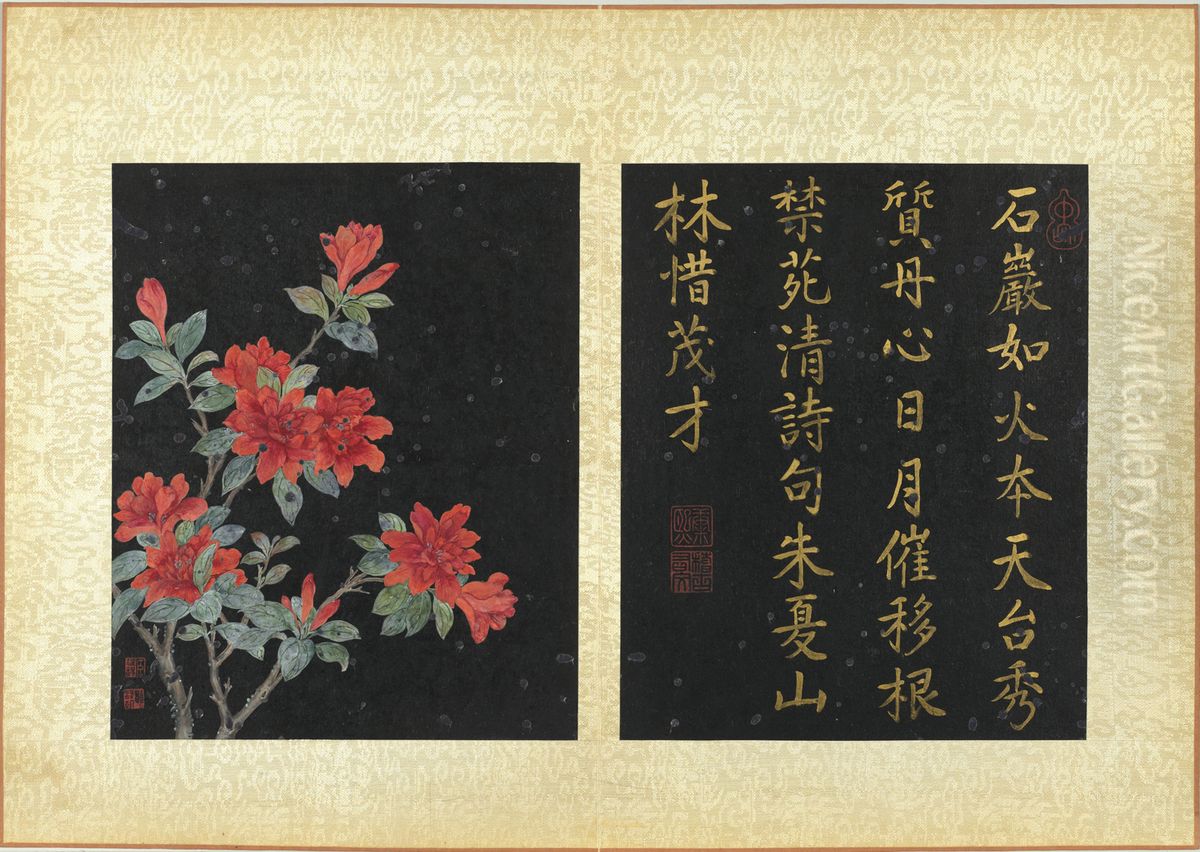 石巖如火本天台秀
質丹心日月催移根
禁苑清詩句朱夏山
林惜茂才
NiceArtGallery.com